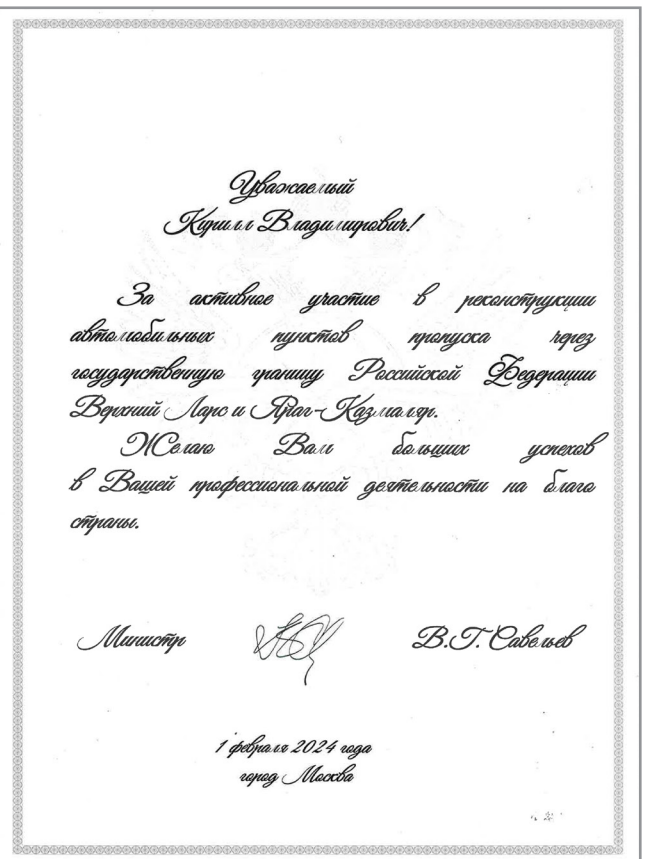 Уважаемый
Кирилл Владимирович!
За активное участие в реконструкции
автомобильных пунктов пропуска через
государственную границу Российской Федерации
Верхний Ларс и Яраг-Казмаляр.
Желаю Вам больших успехов
в Вашей профессиональной деятельности на благо
страны.
Министр В.Г. Савельев
1 февраля 2024 года
город Москва